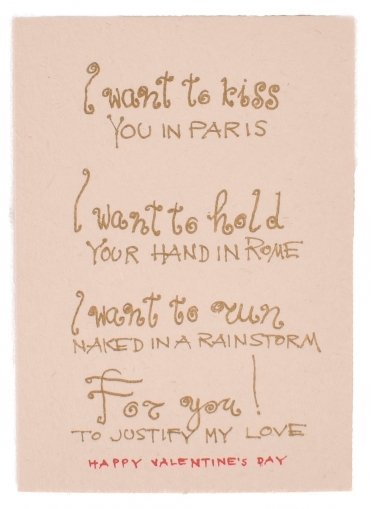 I want to kiss
YOU IN PARIS
I want to hold
YOUR HAND IN ROME
I want to run
NAKED IN A RAINSTORM
For you!
TO JUSTIFY MY LOVE
HAPPY VALENTINE'S DAY